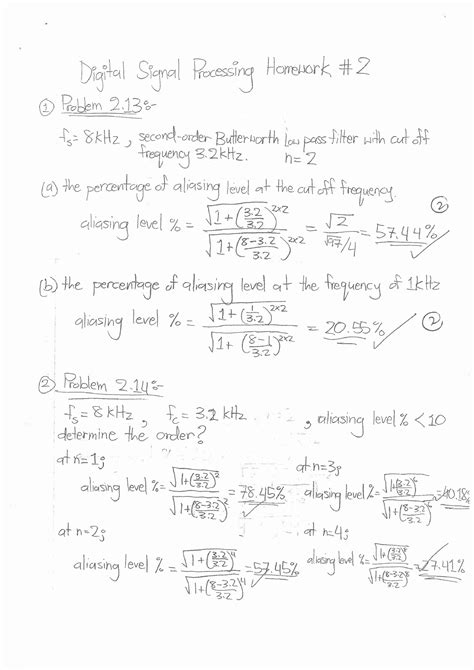 Digital Signal Processing Homework #2
① Problem 2.13:-
fs = 8 kHz , second-order Butterworth low pass filter with cut off
frequency 3.2 kHz. n = 2
(a) the percentage of aliasing level at the cut off frequency.
aliasing level % = √(1+(3.2/3.2)^2x2) / √(1+((8-3.2)/3.2)^2x2) = √2 / (√97/4) = 57.44% ✓ ②
(b) the percentage of aliasing level at the frequency of 1kHz
aliasing level % = √(1+(1/3.2)^2x2) / √(1+((8-1)/3.2)^2x2) = 20.55% ✓ ②
② Problem 2.14:-
fs = 8 kHz , fc = 3.2 kHz , aliasing level % < 10
determine the order?
at n=1;
aliasing level % = √(1+(3.2/3.2)^2) / √(1+((8-3.2)/3.2)^2) = 78.45%
at n=3;
aliasing level % = √(1+(3.2/3.2)^6) / √(1+((8-3.2)/3.2)^6) = 40.18%
at n=2;
aliasing level % = √(1+(3.2/3.2)^4) / √(1+((8-3.2)/3.2)^4) = 57.45%
at n=4;
aliasing level % = √(1+(3.2/3.2)^8) / √(1+((8-3.2)/3.2)^8) = 27.41%